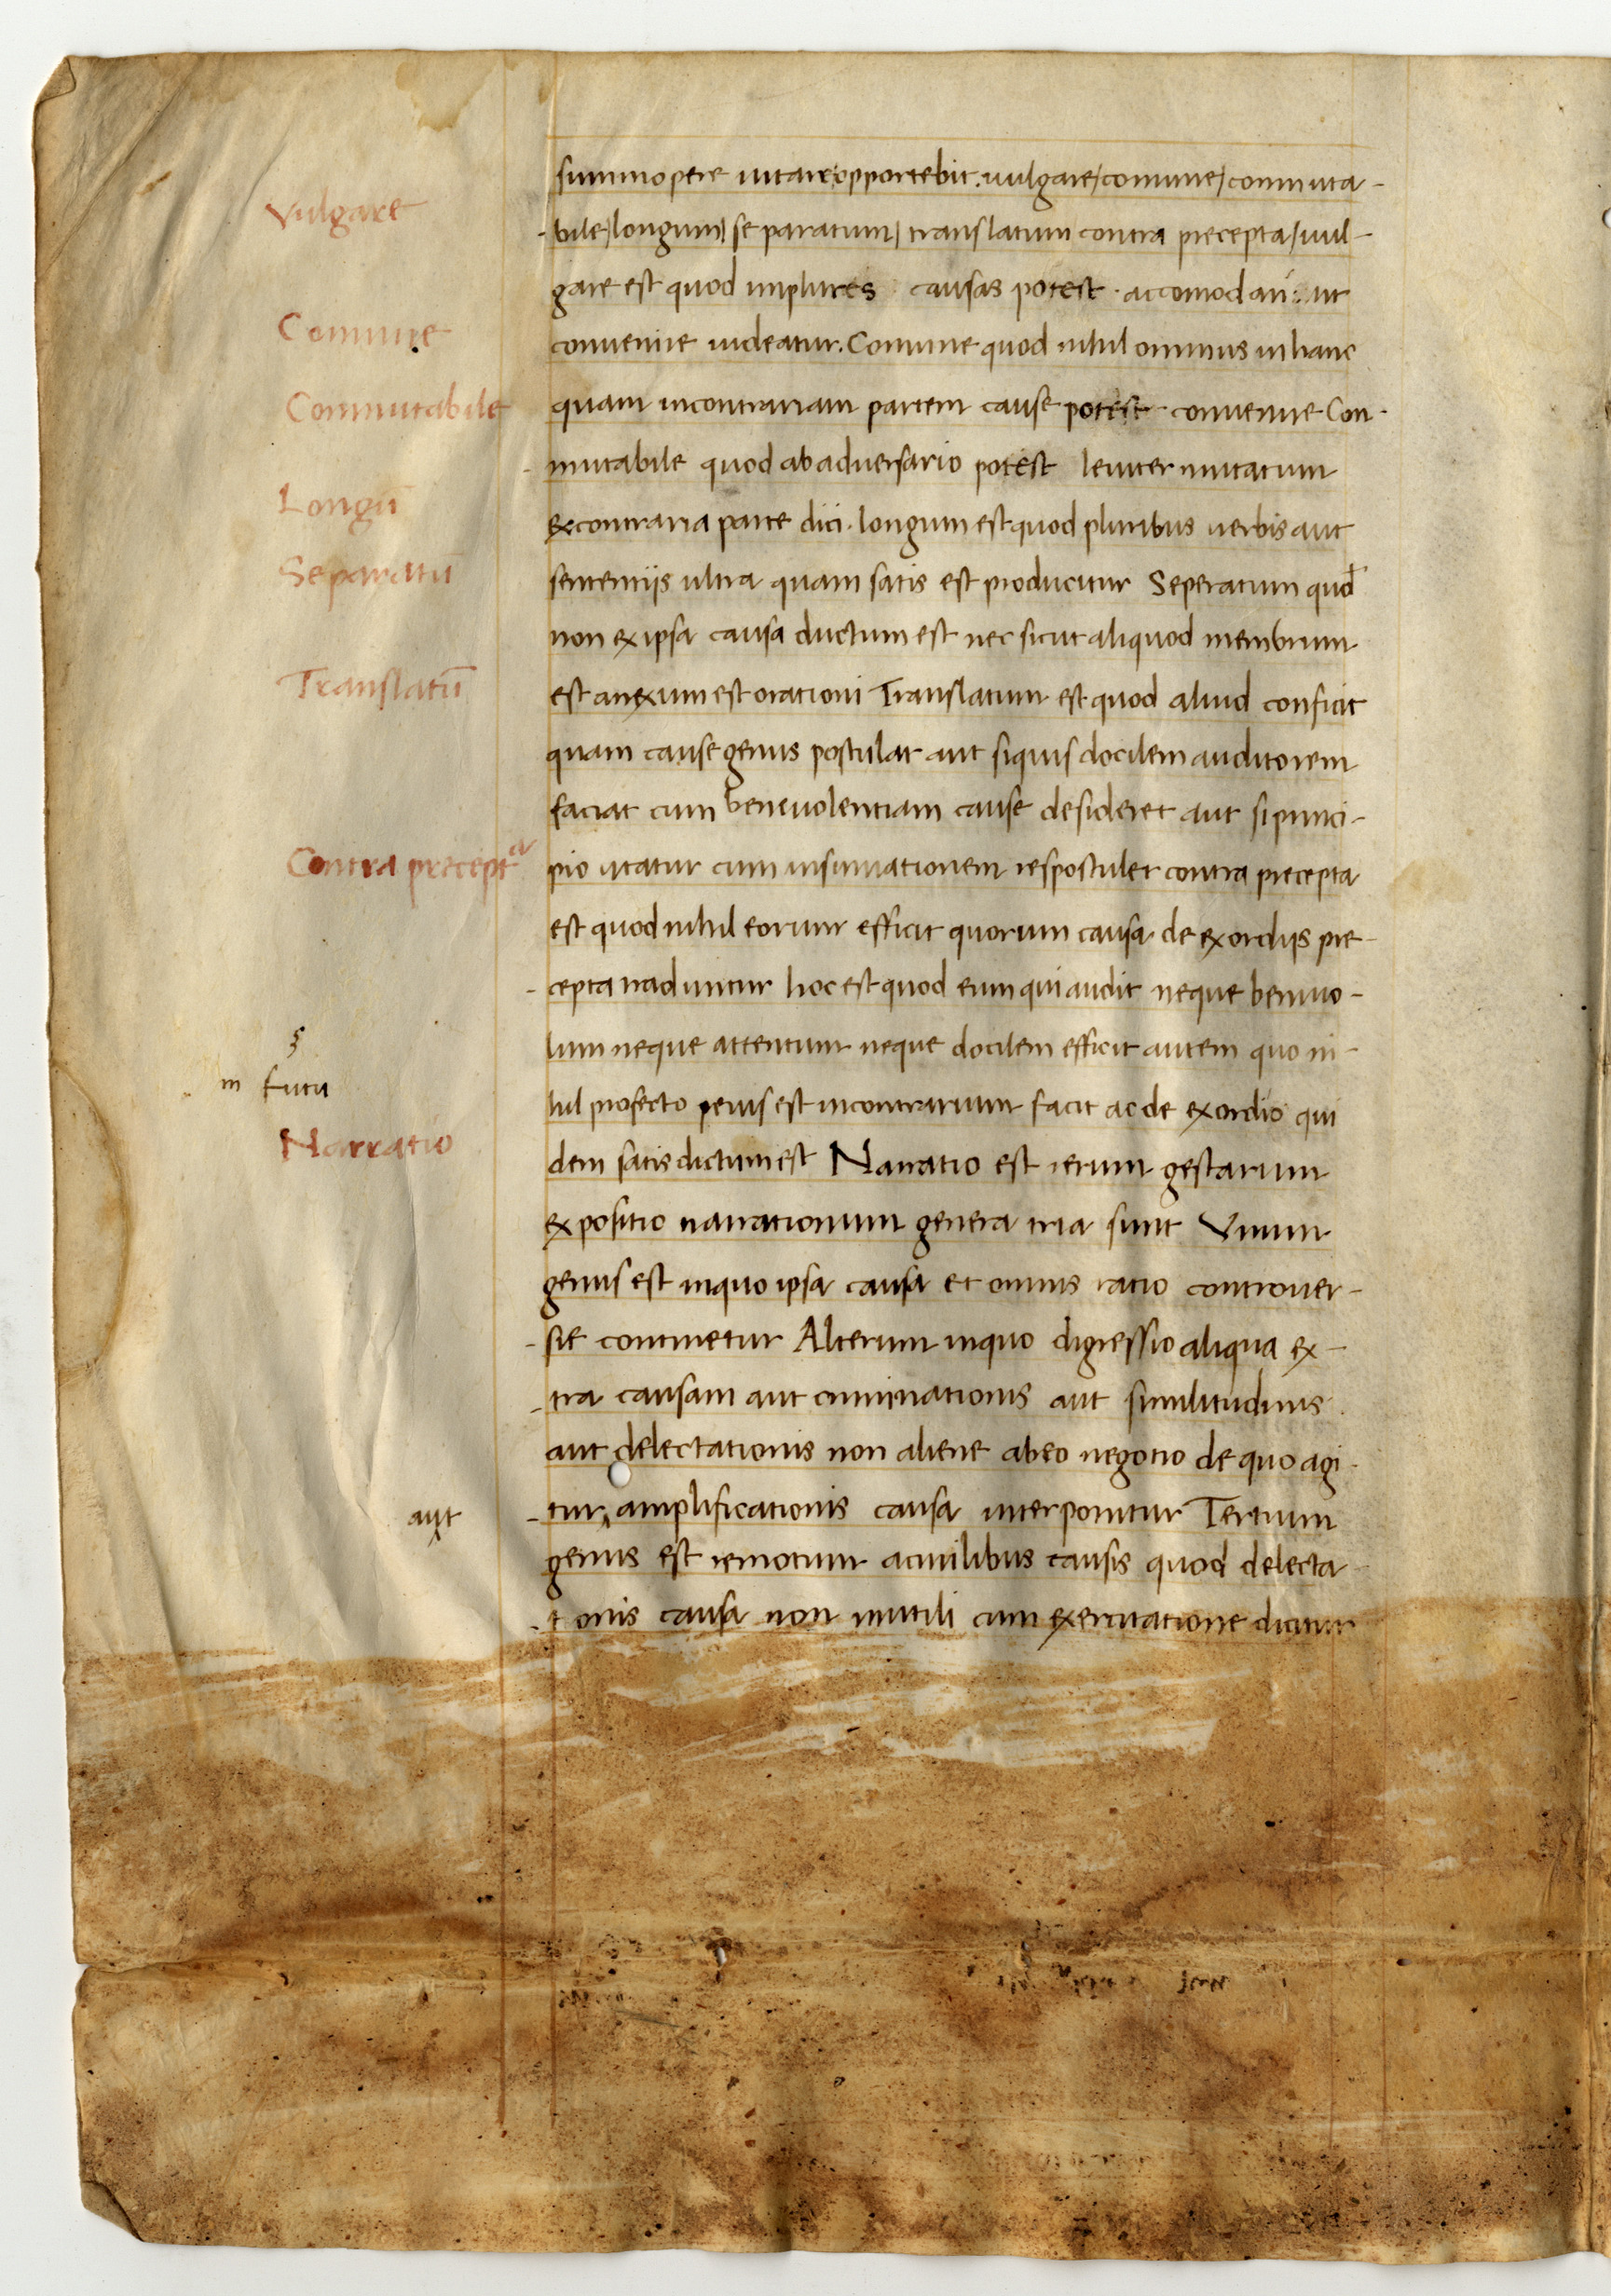 Vulgare
Comune
Commutabile
Longū
Separatū
Translatū
Contra precepta
§
m futu
Narratio
aut
summopere uitare opportebit. uulgare/comune/commuta-
bile/longum/separatum/translatum contra precepta/uul-
gare est quod implures causas potest accomodari ut
conuenire uideatur. Comune quod nihil ominus in hanc
quam incontrariam partem cause potest conuenire Con-
mutabile quod ab aduersario potest leuiter mutatum
ex contraria parte dici. longum est quod pluribus uerbis aut
sententiis ultra quam satis est producitur Seperatum quod
non ex ipsa causa ductum est nec sicut aliquod membrum
est anexum est orationi Translatum est quod aliud conficit
quam cause genus postulat aut siquis docilem auditorem
faciat cum beneuolentiam cause desideret aut si princi-
pio utatur cum insinuationem res postulet contra precepta
est quod nihil eorum efficit quorum causa de exordiis pre-
cepta traduntur hoc est quod eum qui audit neque beniuo-
lum neque attentum neque docilem efficit autem quo ni-
hil profecto peius est incontrarium facit ac de exordio qui
dem satis dictum est Narratio est rerum gestarum
expositio narrationum genera tria sunt Vnum
genus est inquo ipsa causa et omnis ratio controuer-
sie continetur Alterum inquo digressio aliqua ex-
tra causam aut criminationis aut similitudinis
aut delectationis non aliene ab eo negotio de quo agi-
tur amplificationis causa interponitur Tertium
genus est remotum aciuilibus causis quod delecta-
tionis causa non inutili cum exercitatione dicitur